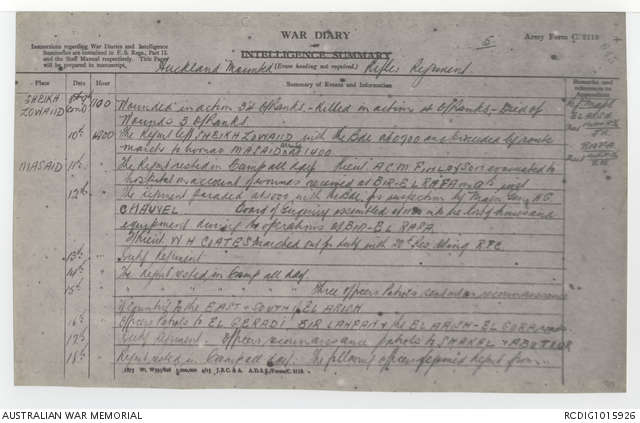 WAR DIARY
or
INTELLIGENCE SUMMARY
5
Army Form C. 2118
Instructions regarding War Diaries and Intelligence
Summaries are contained in F. S. Regs., Part II.
and the Staff Manual respectively. Title Pages
will be prepared in manuscript.
Auckland Mounted Rifles Regiment
(Erase heading not required.)
Place Date Hour Summary of Events and Information Remarks and references to Appendices
SHEIKH ZOWAIID 1100 Wounded in action 32 O/Ranks - Killed in action O/Ranks - Died of
Wounds 3 O/Ranks.
EL ARISH
10th 1400 The Regmt left SHEIKH ZOWAIID with the Bde at 0700 and proceeded by route
march to bivouac MASAID at 1400
RAFA
MASAID 11th The Regmt rested in Camp all day. Lieut A.C.M. FINLAYSON evacuated to
hospital on account of wounds received at BIR-EL RAFA on 9th inst
12th The regiment paraded at 1000 with the Bde for inspection by Major Gen. HG
CHAUVEL Board of Enquiry assembled at into the loss of horses and
equipment during the operations at BIR-EL RAFA
Lieut W H COATES marched out for duty with 20th Res Wing RFC
13th Duty Regiment
14th The Regmt rested in Camp all day
15th " " " " " " Three Officers Patrols sent out on reconnaissance
of country to the EAST & SOUTH of EL ARISH
16th Officers Patrols to EL GERADI BIR LAHFAN & the EL ARISH - EL road.
17th Duty Regiment. Officers reconnaissance patrols to
18th Regmt rested in Camp all day. The following officers rejoined Regmt from
1875 Wt. W593/826 1,000,000 4/15 J.B.C. & A. A.D.S.S./Forms/C. 2118.
AUSTRALIAN WAR MEMORIAL
RCDIG1015926